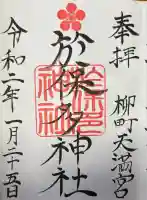 奉拝
柳町天満宮
於保多神社
令和二年一月二十五日